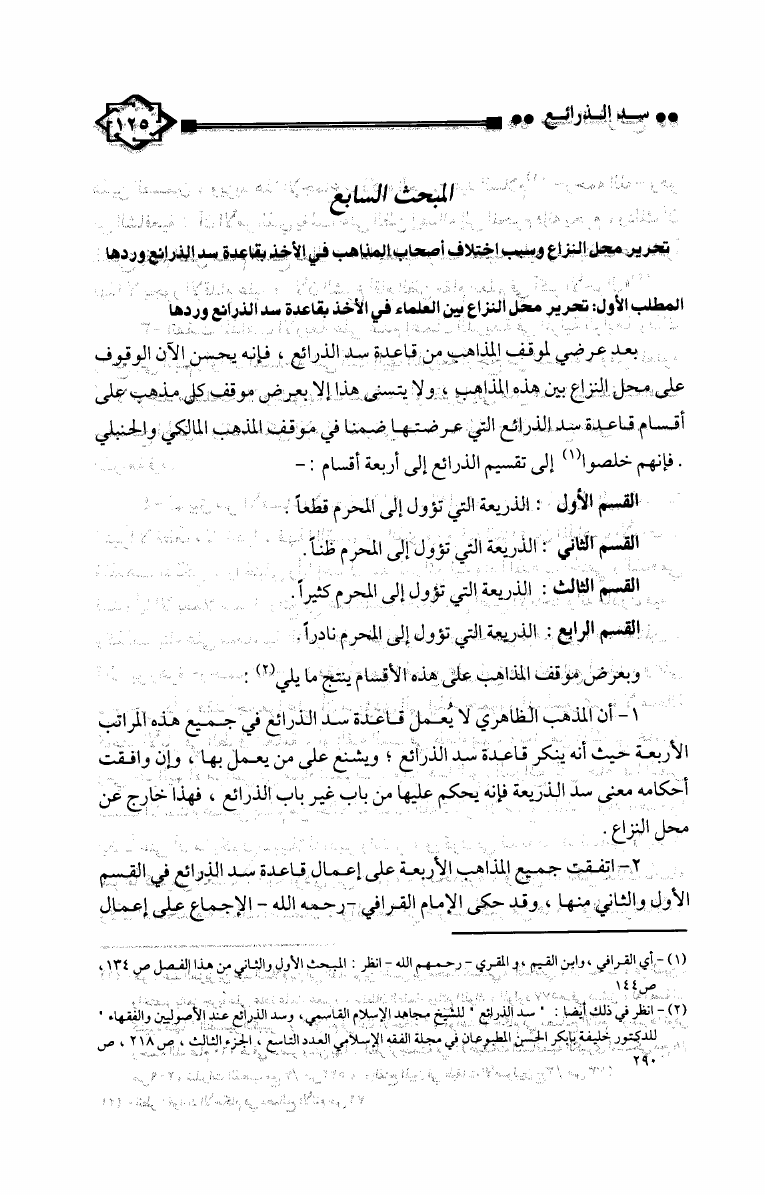 سد الذرائع
١٢٥
المبحث السابع
تحرير محل النزاع وسبب اختلاف أصحاب المذاهب في الأخذ بقاعدة سد الذرائع وردها
المطلب الأول: تحرير محل النزاع بين العلماء في الأخذ بقاعدة سد الذرائع وردها
بعد عرضي لموقف المذاهب من قاعدة سد الذرائع ، فإنه يحسن الآن الوقوف
على محل النزاع بين هذه المذاهب ، ولا يتسنى هذا إلا بعرض موقف كل مذهب على
أقسام قاعدة سد الذرائع التي عرضتها ضمنا في موقف المذهب المالكي والحنبلي
. فإنهم خلصوا(١) إلى تقسيم الذرائع إلى أربعة أقسام : –
القسم الأول : الذريعة التي تؤول إلى المحرم قطعاً .
القسم الثاني : الذريعة التي تؤول إلى المحرم ظناً .
القسم الثالث : الذريعة التي تؤول إلى المحرم كثيراً .
القسم الرابع : الذريعة التي تؤول إلى المحرم نادراً .
وبعرض موقف المذاهب على هذه الأقسام ينتج ما يلي(٢) :
١- أن المذهب الظاهري لا يُعمل قاعدة سد الذرائع في جميع هذه المراتب
الأربعة حيث أنه ينكر قاعدة سد الذرائع ؛ ويشنع على من يعمل بها ، وإن وافقت
أحكامه معنى سد الذريعة فإنه يحكم عليها من باب غير باب الذرائع ، فهذا خارج عن
محل النزاع .
٢- اتفقت جميع المذاهب الأربعة على إعمال قاعدة سد الذرائع في القسم
الأول والثاني منها ، وقد حكى الإمام القرافي –رحمه الله – الإجماع على إعمال
(١) – أي القرافي ،وابن القيم ،و المقري – رحمهم الله – انظر : المبحث الأول والثاني من هذا الفصل ص ١٣٤ ،
ص١٤٤
(٢) – انظر في ذلك أيضا : " سد الذرائع " للشيخ مجاهد الإسلام القاسمي، وسد الذرائع عند الأصوليين والفقهاء "
للدكتور خليفة بابكر الحسن المطبوعان في مجلة الفقه الإسلامي العدد التاسع ، الجزء الثالث ، ص ٢١٨ ، ص
٢٩٠